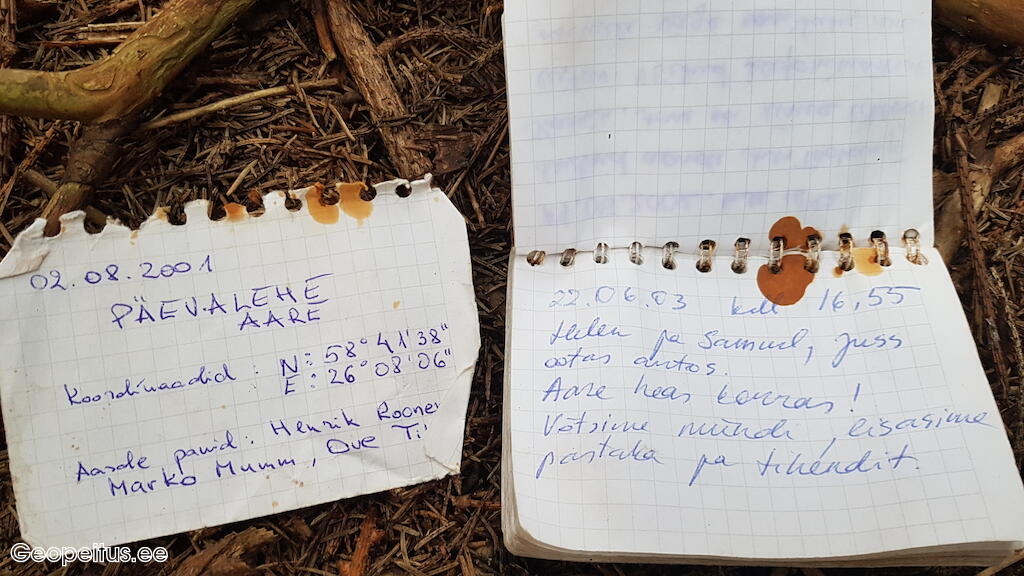 02.08.2001
PÄEVALEHE
AARE
Koordinaadid : N: 58°41'38"
E: 26°08'06"
Aarde panid: Henrik Roone
Marko Mumm, Ove Ti
22.06.03 kell 16,55
Helen ja Samuel, Juss
ootas autos.
Aare heas korras!
Võtsime mündi, lisasime
pastaka ja tihendit.
Geopeitus.ee